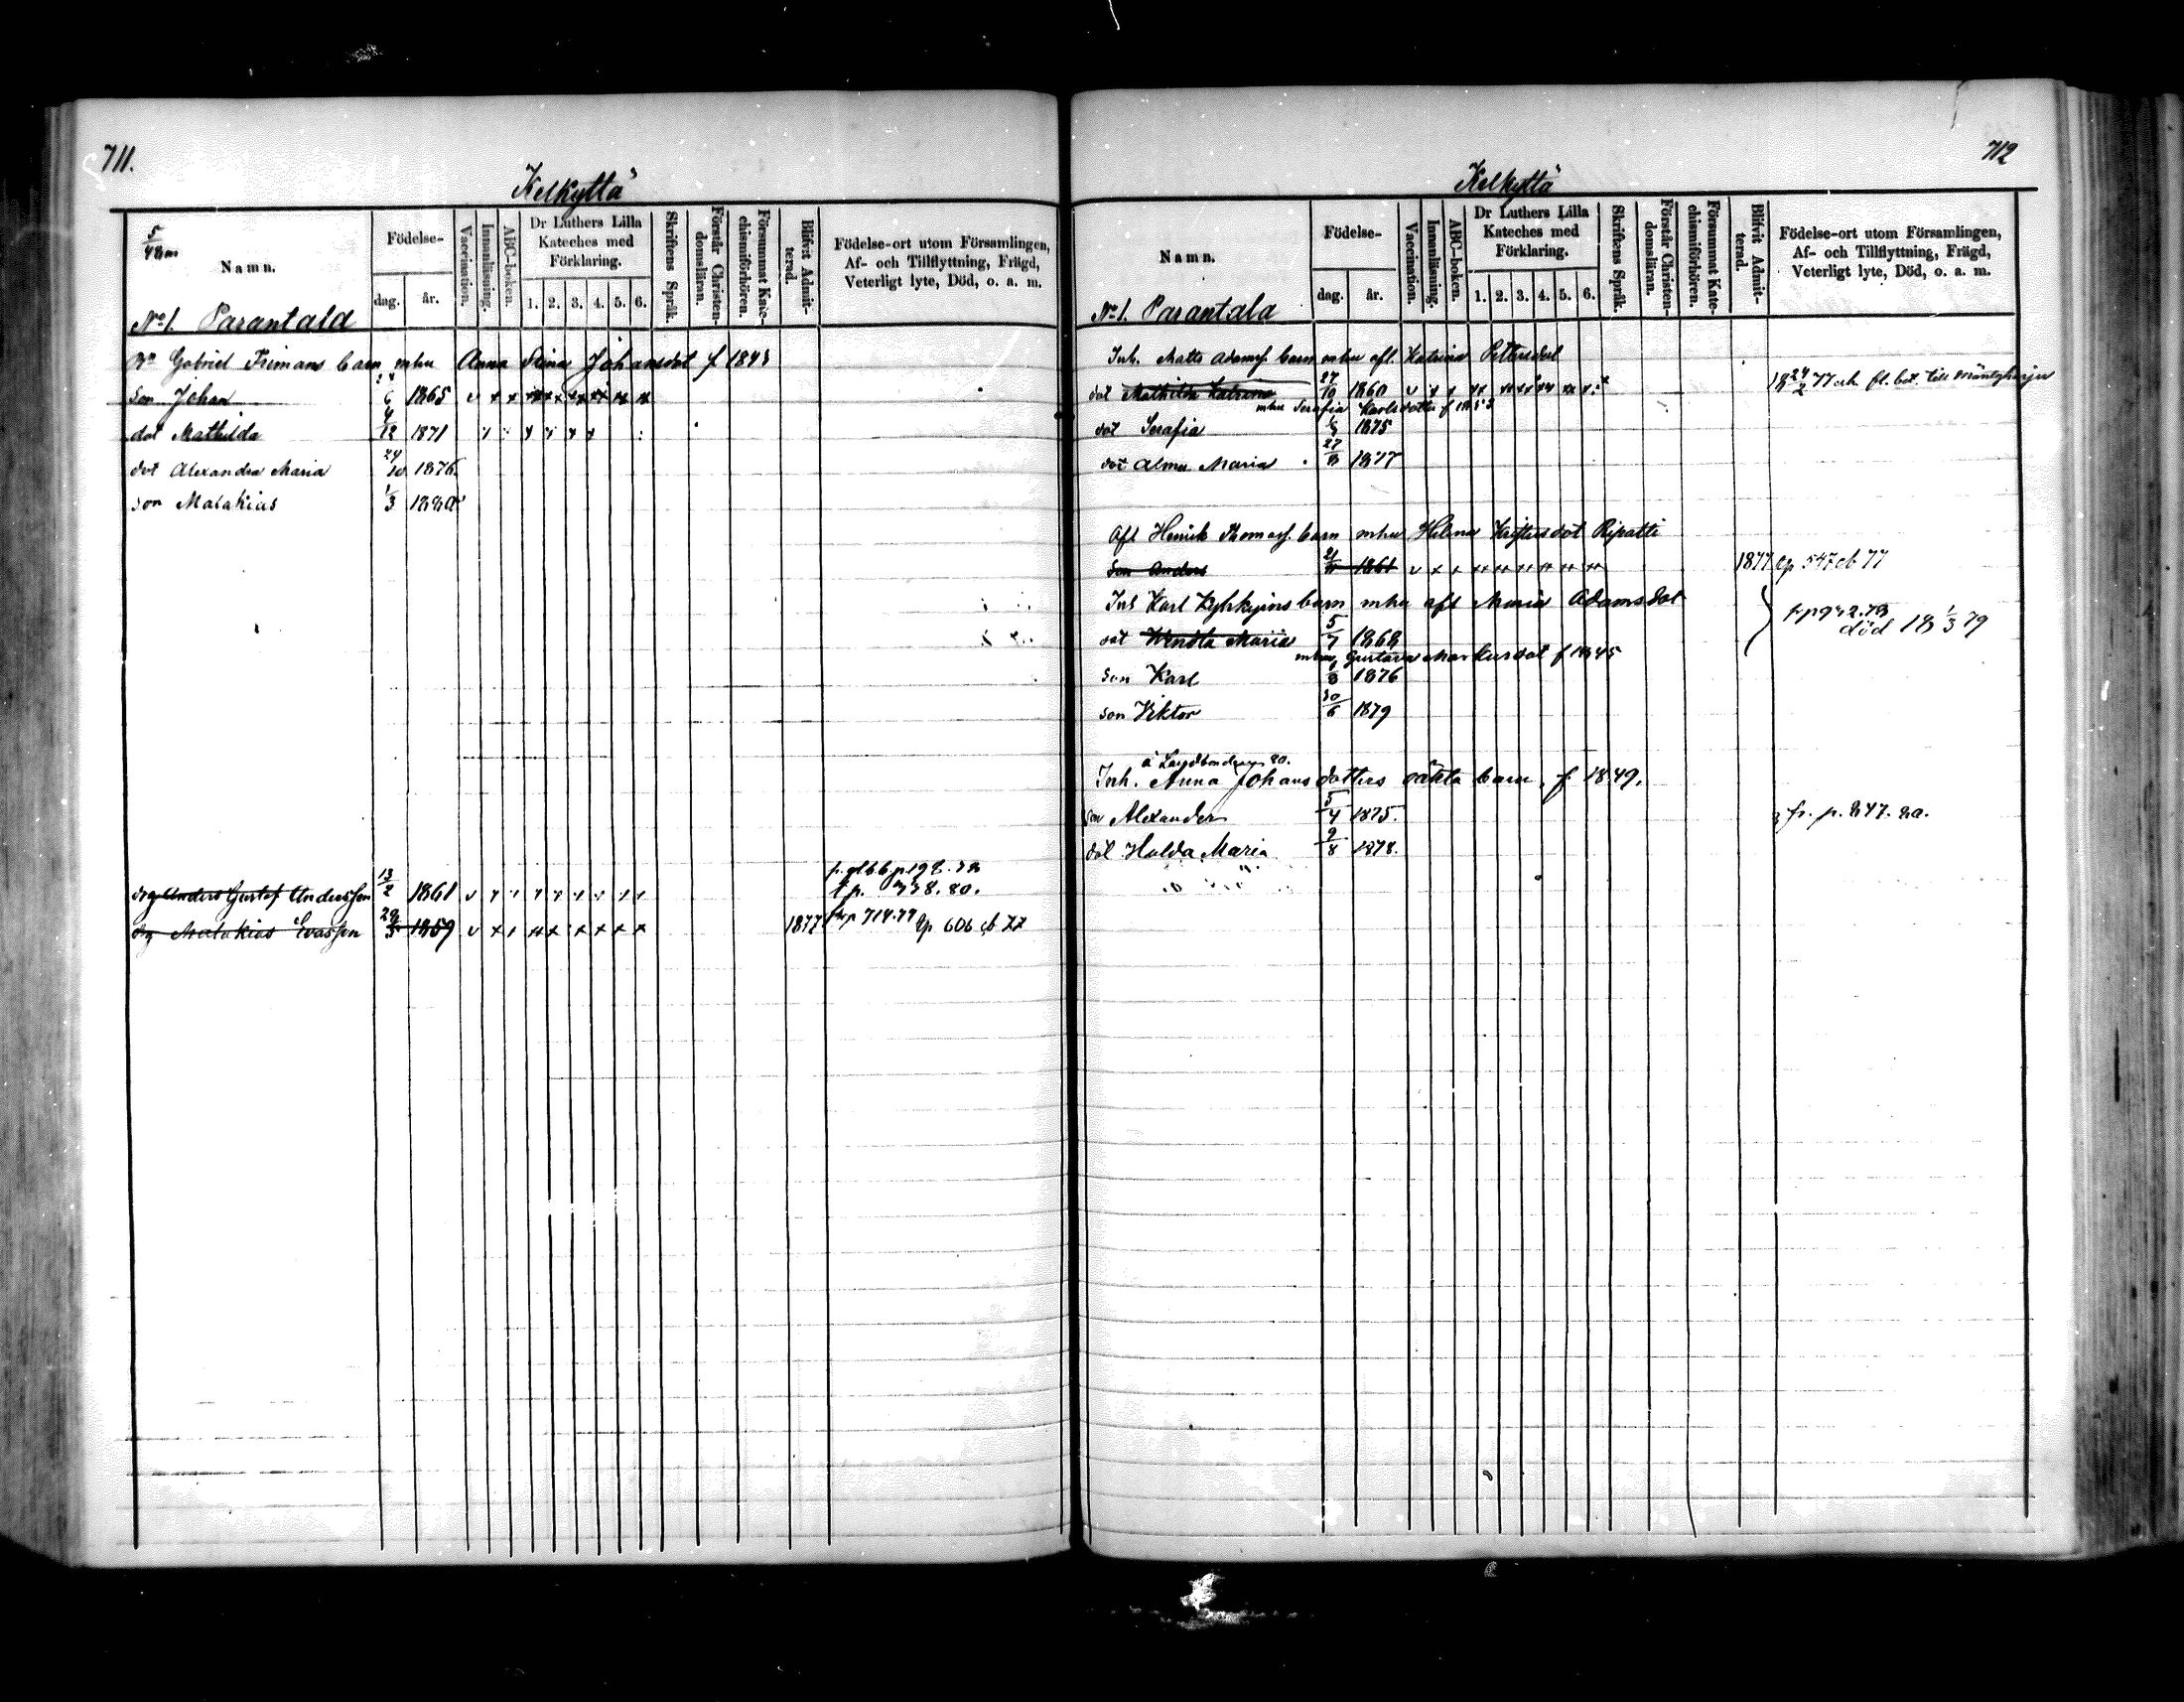 711.
Kelkyttä
5/48 m
Namn.
Födelse-
dag. år.
Vaccination.
Innanläsning.
ABC-boken.
Dr Luthers Lilla Kateches med Förklaring.
1. 2. 3. 4. 5. 6.
Skriftens Språk.
Förstår Christendomsläran.
Försummat Katechismiförhören.
Blifvit Admitterad.
Födelse-ort utom Församlingen,
Af- och Tillflyttning, Frägd,
Veterligt lyte, Död, o. a. m.
No 1. Parantala
Gabriel Frimans barn mhu Anna Stina Johansdot f 1843
son Johan 6 1865 v x x
dot Mathilda 4/12 1871
dot Alexandra Maria 24/10 1876.
son Malakias 1/3 1880
p. 198. 78
drg Anders Gustaf Andersson 13/2 1861 v t p. 778. 80.
drg Malakias Evasson 29/3 1859 v x 1877 p 714.77 lp 606 cb 77
712
Kelkyttä
Namn.
Födelse-
dag. år.
Vaccination.
Innanläsning.
ABC-boken.
Dr Luthers Lilla Kateches med Förklaring.
1. 2. 3. 4. 5. 6.
Skriftens Språk.
Förstår Christendomsläran.
Försummat Katechismiförhören.
Blifvit Admitterad.
Födelse-ort utom Församlingen,
Af- och Tillflyttning, Frägd,
Veterligt lyte, Död, o. a. m.
No 1. Parantala
Inh. Matts Adamsf. barn mhu afl. Katrina Pettersdot
dot Mathilda Katrina 27/10 1860 v 18 24/2 77 fl. bet. till Mäntyharju
mhu Serafia Karlsdotter f 1853
dot Serafia 1875
dot Alma Maria 27/8 1877
Afl Henrik Thomasf. barn mhu Helena Kristersdot Ripatti
son Anders 21/11 1861 v 1877 lp 547 cb 77
Inh Karl Kylekyins barn mhu afl Maria Adamsdot
dot Wendla Maria 5/7 1868 död 18 1/3 79
mhu Gustava Markusdot f 1845
son Karl 1/8 1876
son Viktor 30/6 1879
Inh. Anna Johansdotters oäkta barn, f 1849.
son Alexander 5/4 1875. fr. p. 847. 80.
dot Hulda Maria 2/8 1878.